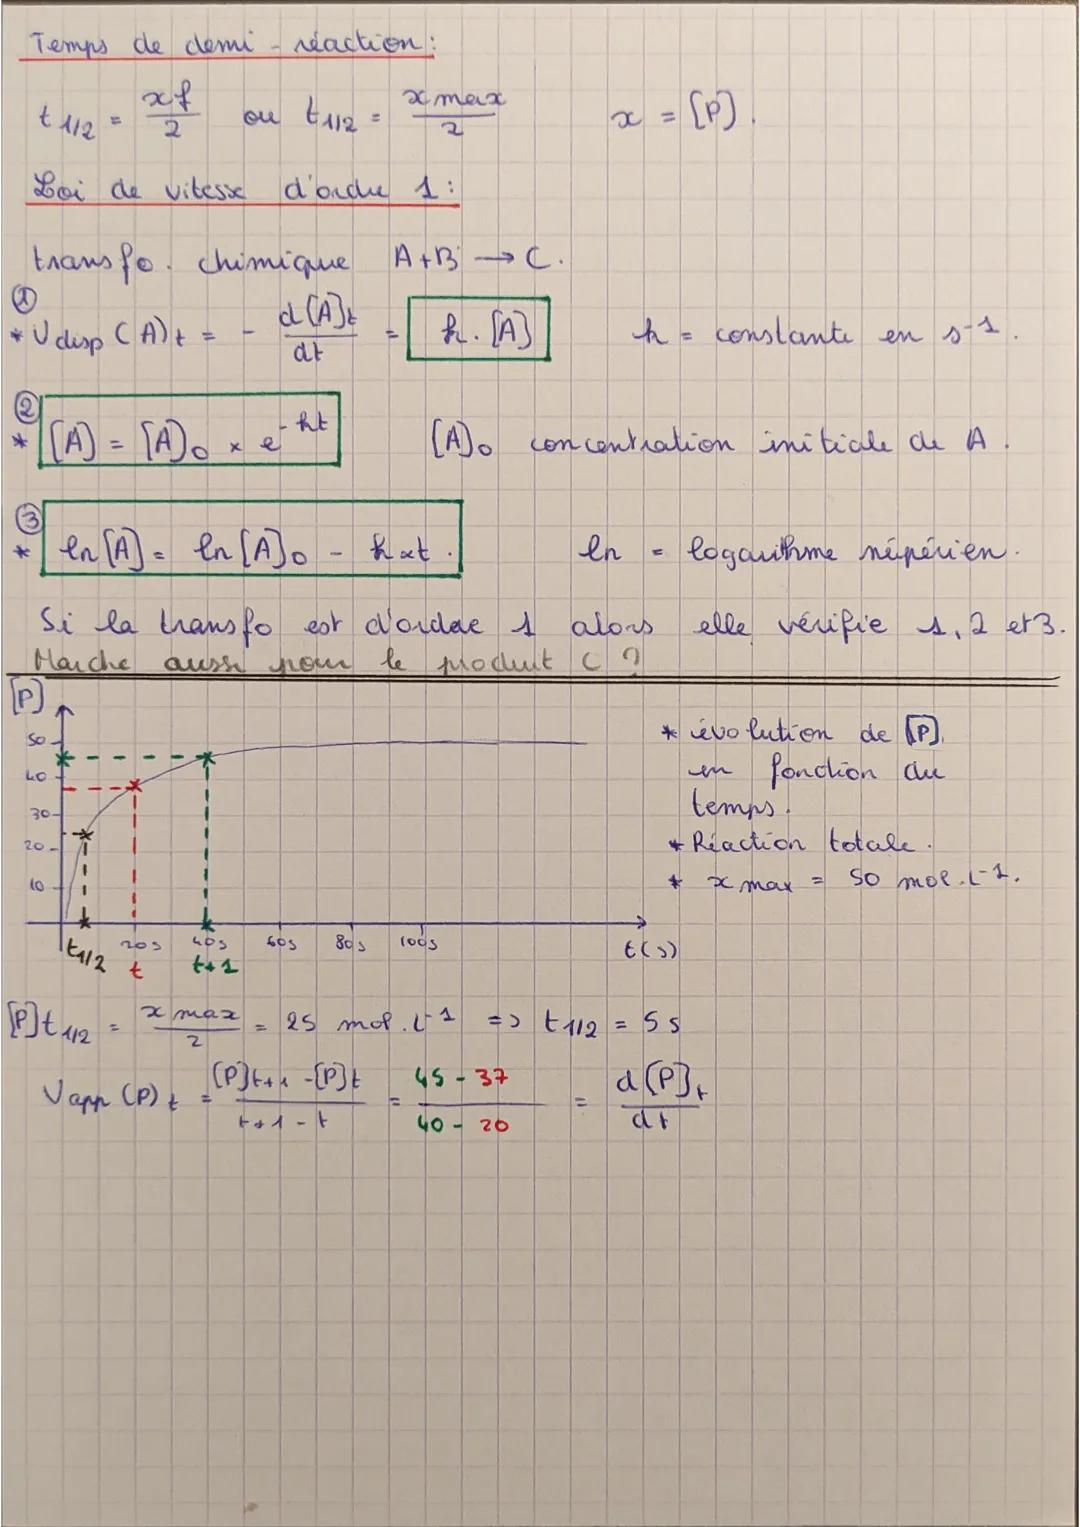 Temps de demi-réaction :
t 1/2 = xf/2 ou t 1/2 = xmax/2 x = [P].
Loi de vitesse d'ordre 1 :
transfo. chimique A+B → C.
①
* Vdisp (A)t = - d[A]t/dt = k.[A] k = constante en s-1.
②
* [A] = [A]0 × e^-kt [A]0 concentration initiale de A.
③
* ln[A] = ln[A]0 - k×t. ln = logarithme népérien.
Si la transfo est d'ordre 1 alors elle vérifie 1, 2 et 3.
Marche aussi pour le produit C ?
[P]
50
40
30
20
10
t1/2 20s 40s 60s 80s 100s t(s)
t t+1
* évolution de [P]
en fonction du
temps.
* Réaction totale.
* xmax = 50 mol.L-1.
[P]t1/2 = xmax/2 = 25 mol.L-1 => t1/2 = 5s
Vapp (P)t = [P]t+1 - [P]t / t+1 - t = 45 - 37 / 40 - 20 = d[P]t/dt